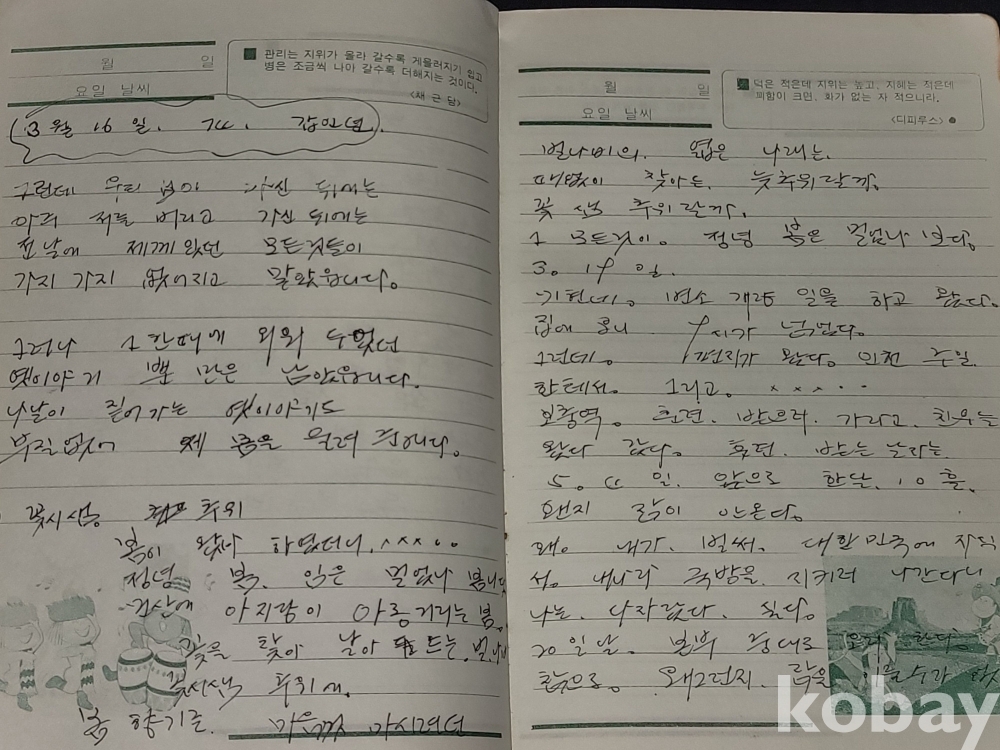 월 일
요일 날씨
관리는 지위가 올라 갈수록 게을러지기 쉽고
병은 조금씩 나아 갈수록 더해지는 것이다.
<채 근 담>
3월 16일.
그런데 우리 님이 가신 뒤에는
아주 저를 버리고 가신 뒤에는
전날에 제게 있던 모든것들이
가지 가지 없어지고 말았습니다.
그러나 그 한때에 외워 두었던
옛이야기 뿐 만은 남았습니다.
나날이 짙어가는 옛이야기도
부질없어 제 몸을 울려 줍니다.
꽃시샘 추위
봄이 왔나 하였더니. xxx..
정녕 봄은 멀었나 봅니다
아지랑이 아롱거리는 봄.
꽃을 찾아 날아 드는.
꽃시샘 추위에.
봄 향기를 마음껏 마시려던
월 일
요일 날씨
덕은 적은데 지위는 높고, 지혜는 적은데
꾀함이 크면, 화가 없는 자 적으니라.
<디피루스>
벌나비의. 엷은 나래는.
때없이 찾아든. 늦추위랄까.
꽃샘 추위랄까.
그 모든것이. 정녕 봄은 멀었나 보다.
3. 19일.
변소 개량 일을 하고 왔다.
집에 오니 시가 넘었다.
그런데. 편지가 왔다. 인천
한테서. 그리고. xxx..
훈련. 받으러. 가라고. 친우는
왔다 갔다. 훈련. 받는 날자는
5. 일. 앞으로 한달. 10
왠지 잠이 안온다.
왜. 내가. 벌써. 대한민국에 자식
서. 내나라 국방을. 지키러 나간다니
나는. 다자랐다. 싶다.
20일날. 본부 중대로 오라 한다.
왜그런지. 수가 없
kobay